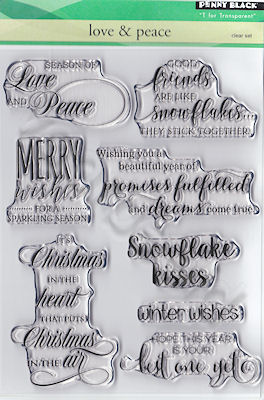 PENNY BLACK
"T for Transparent"
love & peace
clear set
SEASON OF
Love
AND Peace
GOOD
friends
ARE LIKE
snowflakes...
THEY STICK TOGETHER
MERRY
wishes
FOR A
SPARKLING SEASON
Wishing you a
beautiful year of
promises fulfilled
and dreams come true
IT'S
Christmas
IN THE
heart
THAT PUTS
Christmas
IN THE air
Snowflake
kisses
winter wishes
HOPE THIS YEAR
IS YOUR
best one yet